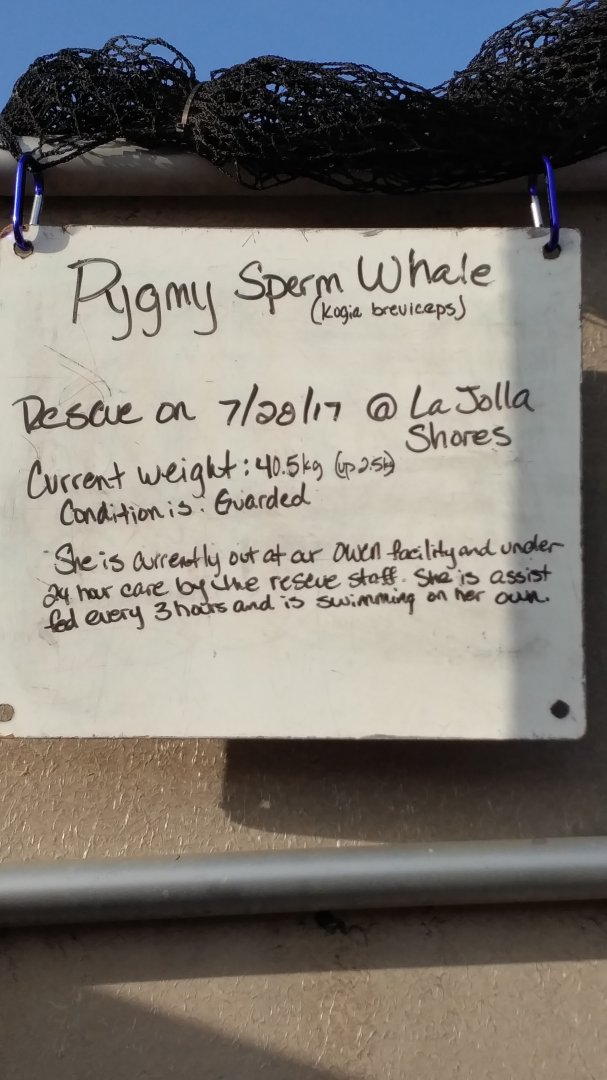 Pygmy Sperm Whale
(Kogia breviceps)
Rescue on 7/28/17 @ La Jolla
Shores
Current weight: 40.5kg (up 2.5k)
Condition is: Guarded
She is currently out at our OWEN facility and under
24 hour care by the rescue staff. She is assist
fed every 3 hours and is swimming on her own.